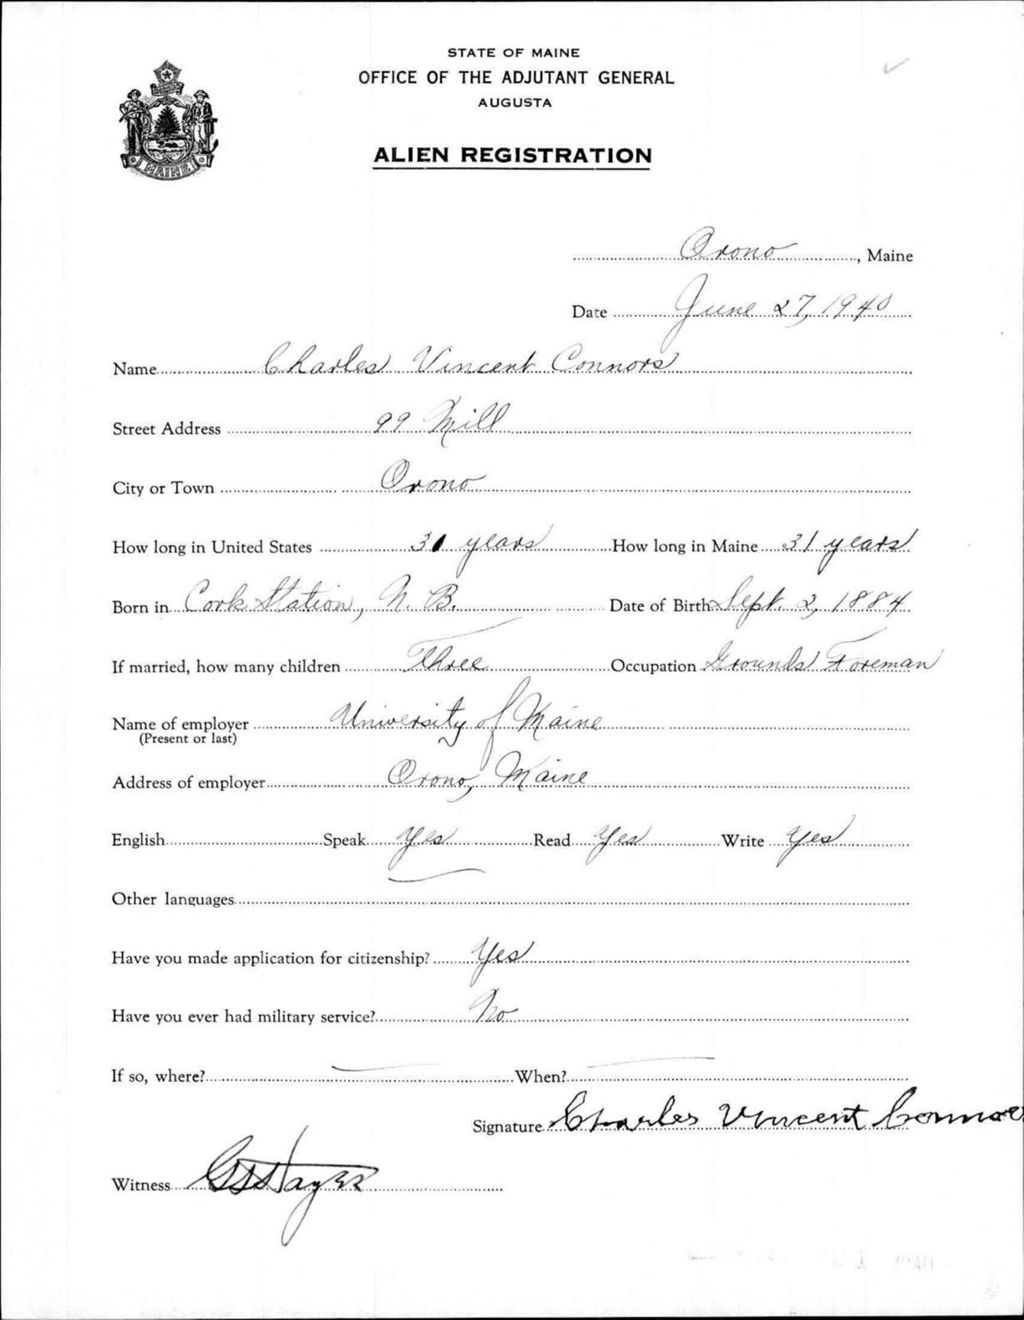 STATE OF MAINE
OFFICE OF THE ADJUTANT GENERAL
AUGUSTA
ALIEN REGISTRATION
MAINE
Orono, Maine
Date June 27, 1940
Name Charles Vincent Connors
Street Address 99 Mill
City or Town Orono
How long in United States 31 years How long in Maine 31 years
Born in Cork Station, N. B. Date of Birth Sept. 2, 1884
If married, how many children Three Occupation Grounds Foreman
Name of employer University of Maine
(Present or last)
Address of employer Orono, Maine
English Speak Yes Read Yes Write Yes
Other languages
Have you made application for citizenship? Yes
Have you ever had military service? No
If so, where? When?
Signature Charles Vincent Connors
Witness Hayes
1940